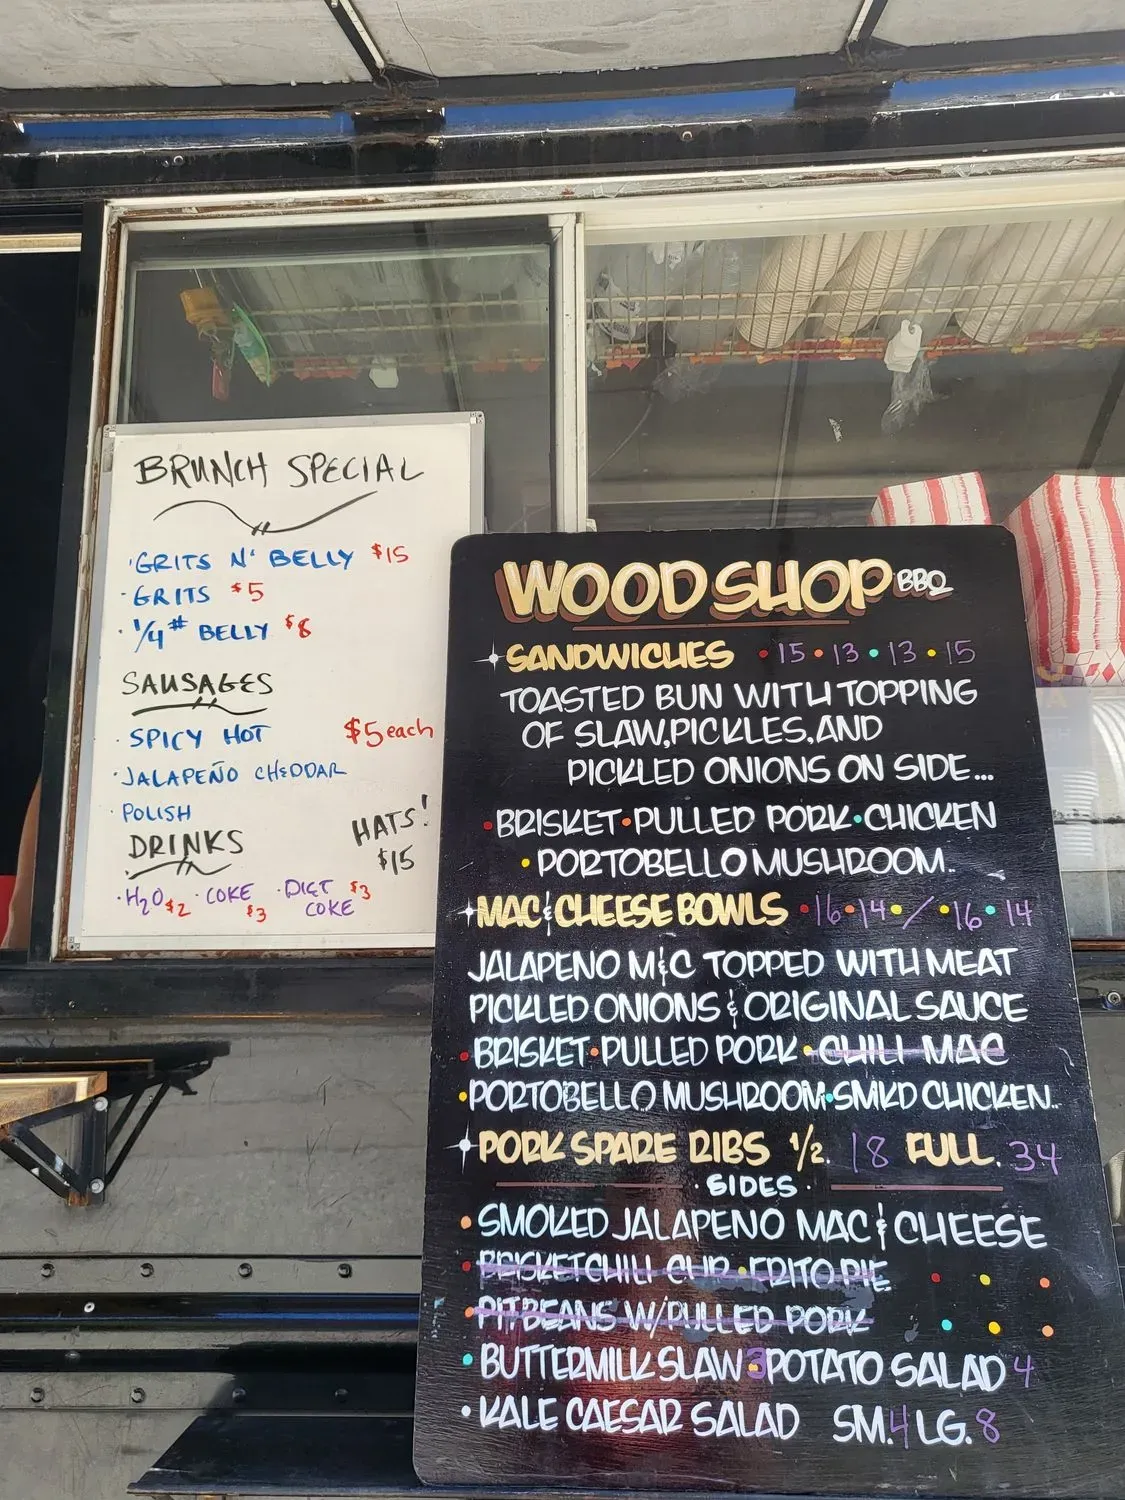 BRUNCH SPECIAL
· GRITS N' BELLY $15
· GRITS $5
· 1/4# BELLY $8
SAUSAGES
· SPICY HOT $5 each
· JALAPEÑO CHEDDAR
· POLISH
HATS!
$15
DRINKS
· H2O $2 · COKE $3 · DIET COKE $3
WOOD SHOP BBQ
SANDWICHES · 15 · 13 · 13 · 15
TOASTED BUN WITH TOPPING
OF SLAW, PICKLES, AND
PICKLED ONIONS ON SIDE...
· BRISKET · PULLED PORK · CHICKEN
· PORTOBELLO MUSHROOM..
MAC & CHEESE BOWLS · 16 · 14 · / · 16 · 14
JALAPENO M&C TOPPED WITH MEAT
PICKLED ONIONS & ORIGINAL SAUCE
· BRISKET · PULLED PORK · CHILI MAC
· PORTOBELLO MUSHROOM · SMKD CHICKEN..
PORK SPARE RIBS 1/2. 18 FULL. 34
· SIDES ·
· SMOKED JALAPENO MAC & CHEESE
· BRISKET CHILI CUP · FRITO PIE
· PIT BEANS W/PULLED PORK
· BUTTERMILK SLAW 3 POTATO SALAD 4
· KALE CAESAR SALAD SM. 4 LG. 8